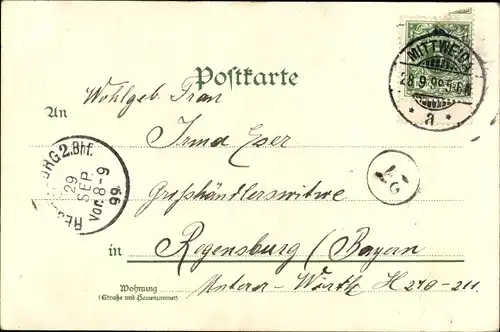 MITTWEIDA
28.9.99
* a *
Postkarte
An Wohlgeb. Frau
Irma Eser
REGENSBURG 2. Bhf.
29
SEP
Vor. 8-9
99.
Großhändlerswitwe
in Regensburg (Bayern
Wohnung
(Straße und Hausnummer)
Unterer-Wörth H 210-211.